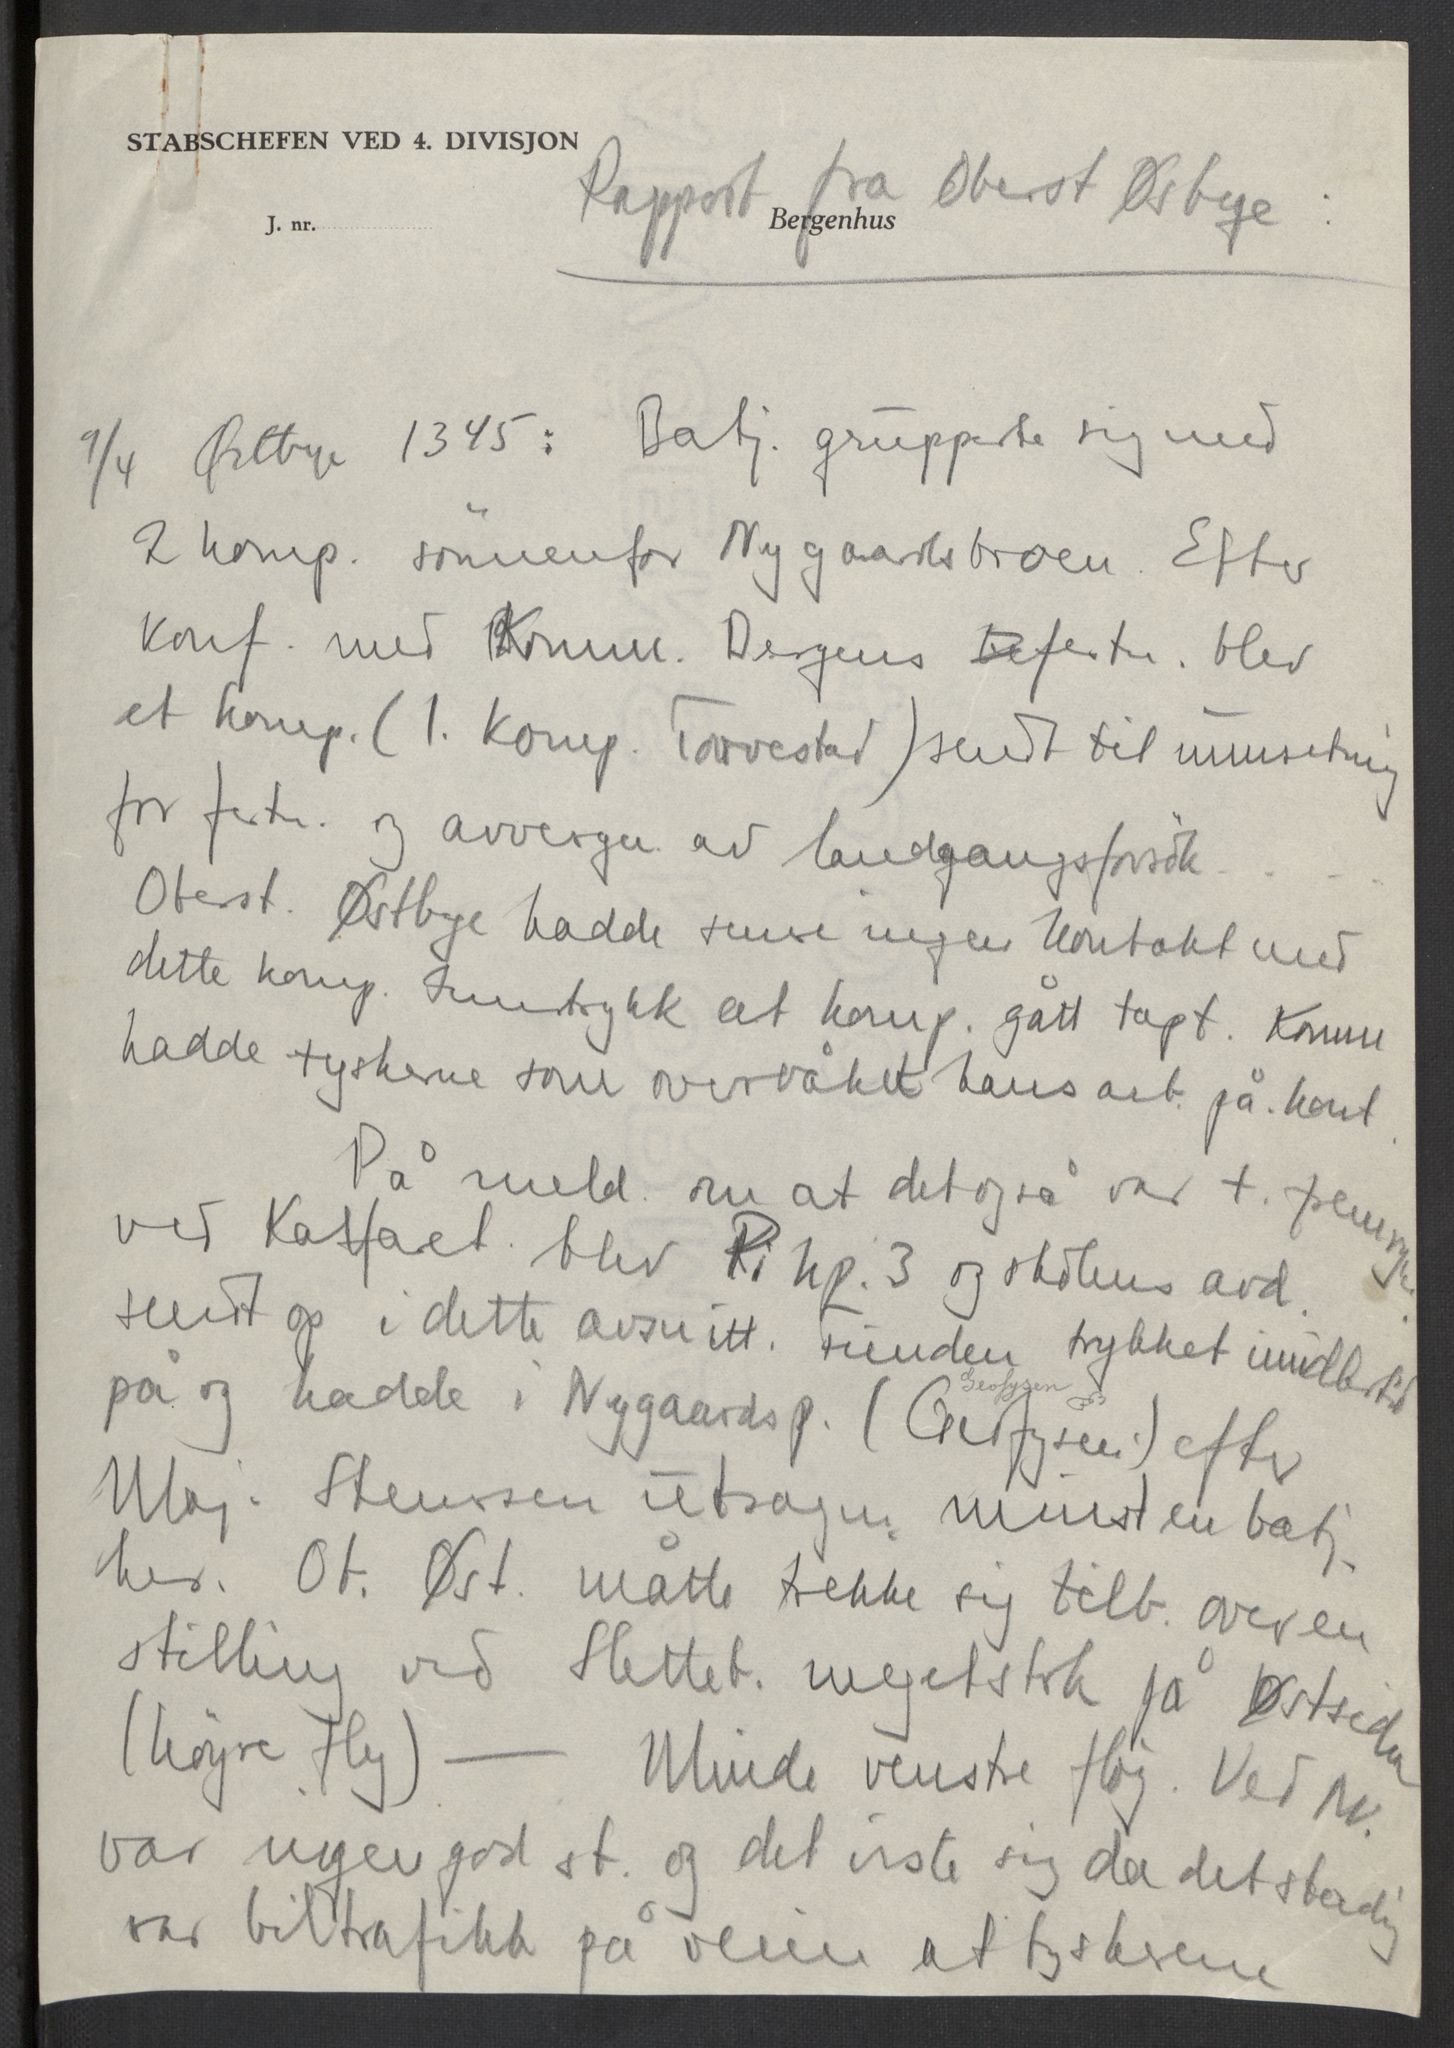 STABSCHEFEN VED 4. DIVISJON
Rapport fra Oberst Østbye :
J. nr. Bergenhus
9/4 Østbye 1345: Batj. grupperte sig med
2 komp. sönnenfor Nygaardsbroen. Efter
konf. med Komm. Bergens festn. blev
et komp. (1. komp. Torvestad) sendt til unnsetning
for festn. og avvergen av landgangsforsök. . . .
Oberst. Østbye hadde senere ingen kontakt med
dette komp. Inntrykk at komp. gått tapt. Komm
hadde tyskerne som overvåket hans arb. på kont.
På meld. om at det også var t. fremrykn.
ved Kalfaret. blev Ri kp. 3 og skolens avd.
sendt op i dette avsnitt. Fienden trykket imidlertid
på og hadde i Nygaardsp. (Geofysen) efter
Geofysen
Maj. Stenersen utsagn minst en batj.
her. Ob. Øst. måtte trekke sig tilb. over en
stilling ved Sletteb. meget sterk på Østsiden
(höyre flöy) — Minde venstre flöy. Ved N.
var ingen god st. og det viste sig da det stadig
var biltrafikk på veien at tyskerne